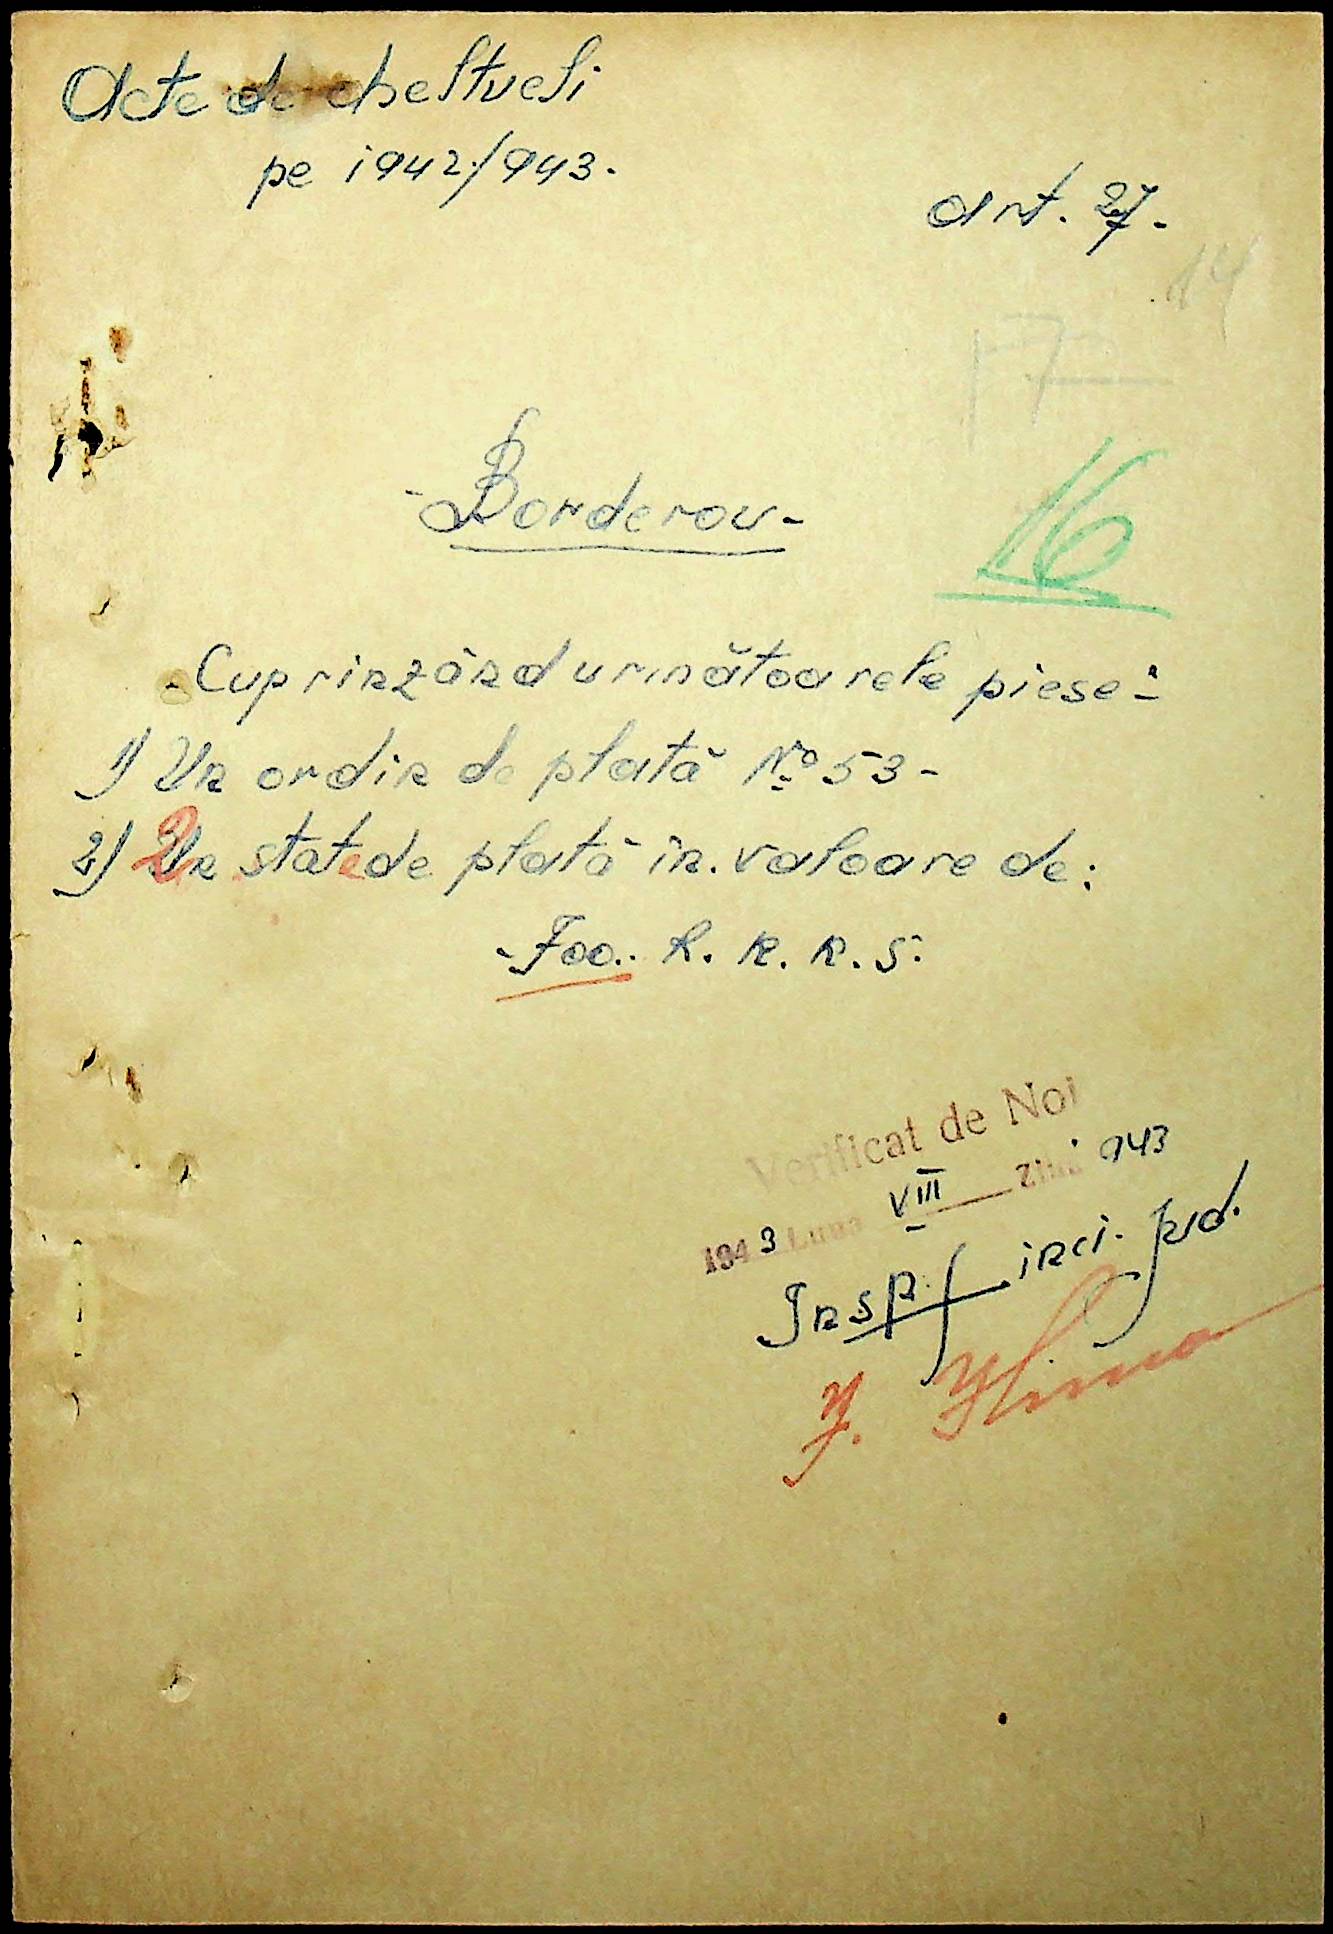 Acte de cheltueli
pe 1942/943.
art. 27.
14
17
Borderou
16
Cuprinzând următoarele piese:
1) Un ordin de plată No 53-
2) 2 state de plată în valoare de:
700.. R. K. R. S.
Verificat de Noi
1943 Luna VIII Ziua 943
Insp. inci. jud.